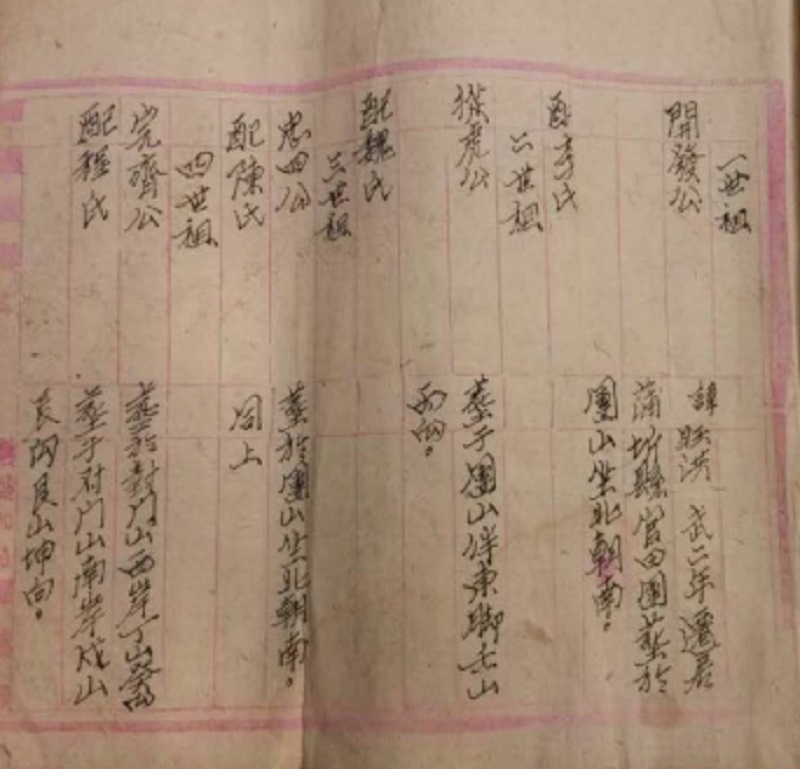 一世祖
開發公
諱 洪武二年遷居
蒲圻縣官田團葬於
團山坐北朝南。
配李氏
二世祖
虎公
葬于團山伴東腳 山
丙向。
配魏氏
三世祖
忠四公
葬於團山坐北朝南。
配陳氏
同上
四世祖
完齊公
葬於對门山西岸丁山癸向
配程氏
葬于对门山南岸戌山
艮山坤向。